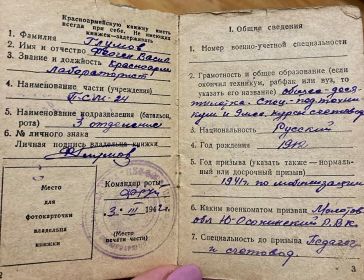 Красноармейскую книжку иметь
всегда при себе. Не имеющих
книжек—задерживать.
1. Фамилия Глумов
2. Имя и отчество
3. Звание и должность Красноарм.
лаборторист
4. Наименование части (учреждения)
5. Наименование подразделения (батальон,
рота) 3 отделение
6. № личного знака
Личная подпись владельца книжки
Место
для
фотокарточки
владельца
книжки
Командир роты
3. III 1942 г.
(Место
печати части)
I. Общие сведения
1. Номер военно-учетной специальности
2. Грамотность и общее образование (если
окончил техникум, рабфак или вуз, то
указать его название) общее - деся-
тилетка. Спец - под. техни-
кум и
3. Национальность Русский
4. Год рождения
5. Год призыва (указать также — нормаль-
ный или досрочный призыв)
1941 г. по мобилизации
6. Каким военкоматом призван Молотов.
обл. Ю-Осокинский Р.В.К.
7. Специальность до призыва Педагог
и счетовод.